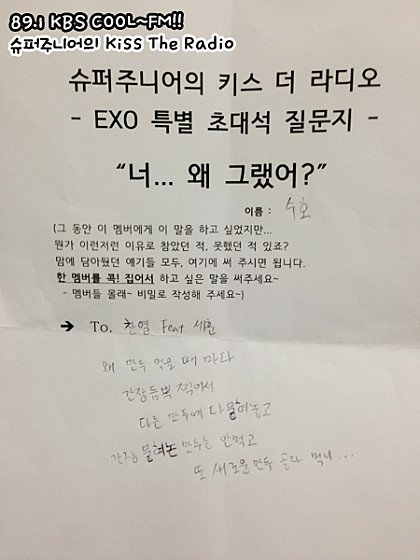 89.1 KBS COOL~FM!!
슈퍼주니어의 Kiss The Radio
슈퍼주니어의 키스 더 라디오
- EXO 특별 초대석 질문지 -
“너... 왜 그랬어?”
이름 : 수호
(그 동안 이 멤버에게 이 말을 하고 싶었지만...
뭔가 이런저런 이유로 참았던 적, 못했던 적 있죠?
맘에 담아뒀던 얘기들 모두, 여기에 써 주시면 됩니다.
한 멤버를 콕! 집어서 하고 싶은 말을 써주세요~
- 멤버들 몰래~ 비밀로 작성해 주세요~)
➔ To. 찬열 Feat 세훈
왜 만두 먹을 때 마다
간장듬뿍 찍어서
다른 만두에 다 묻혀놓고
간장 묻혀논 만두는 안먹고
또 새로운 만두 골라 먹니...